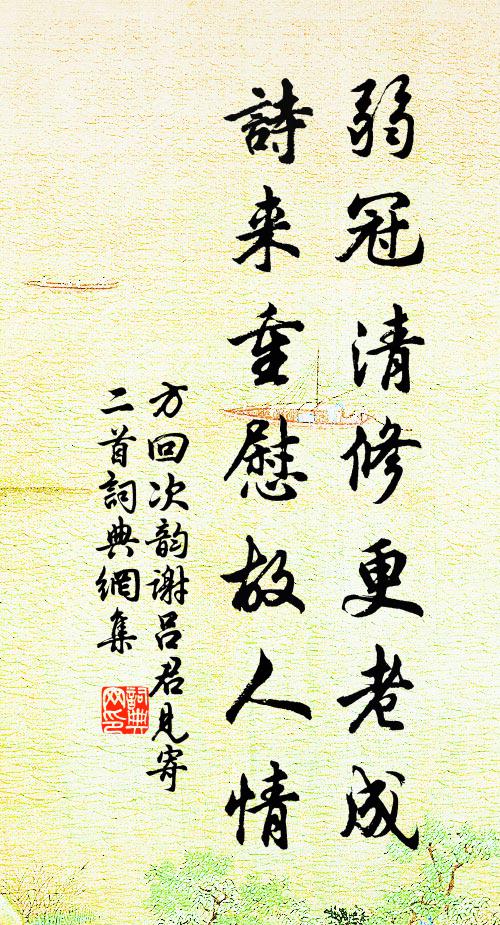 弱冠清修更老成
詩来重慰故人情
方回次韵谢吕君見寄
二首詞典網集
詞典网印